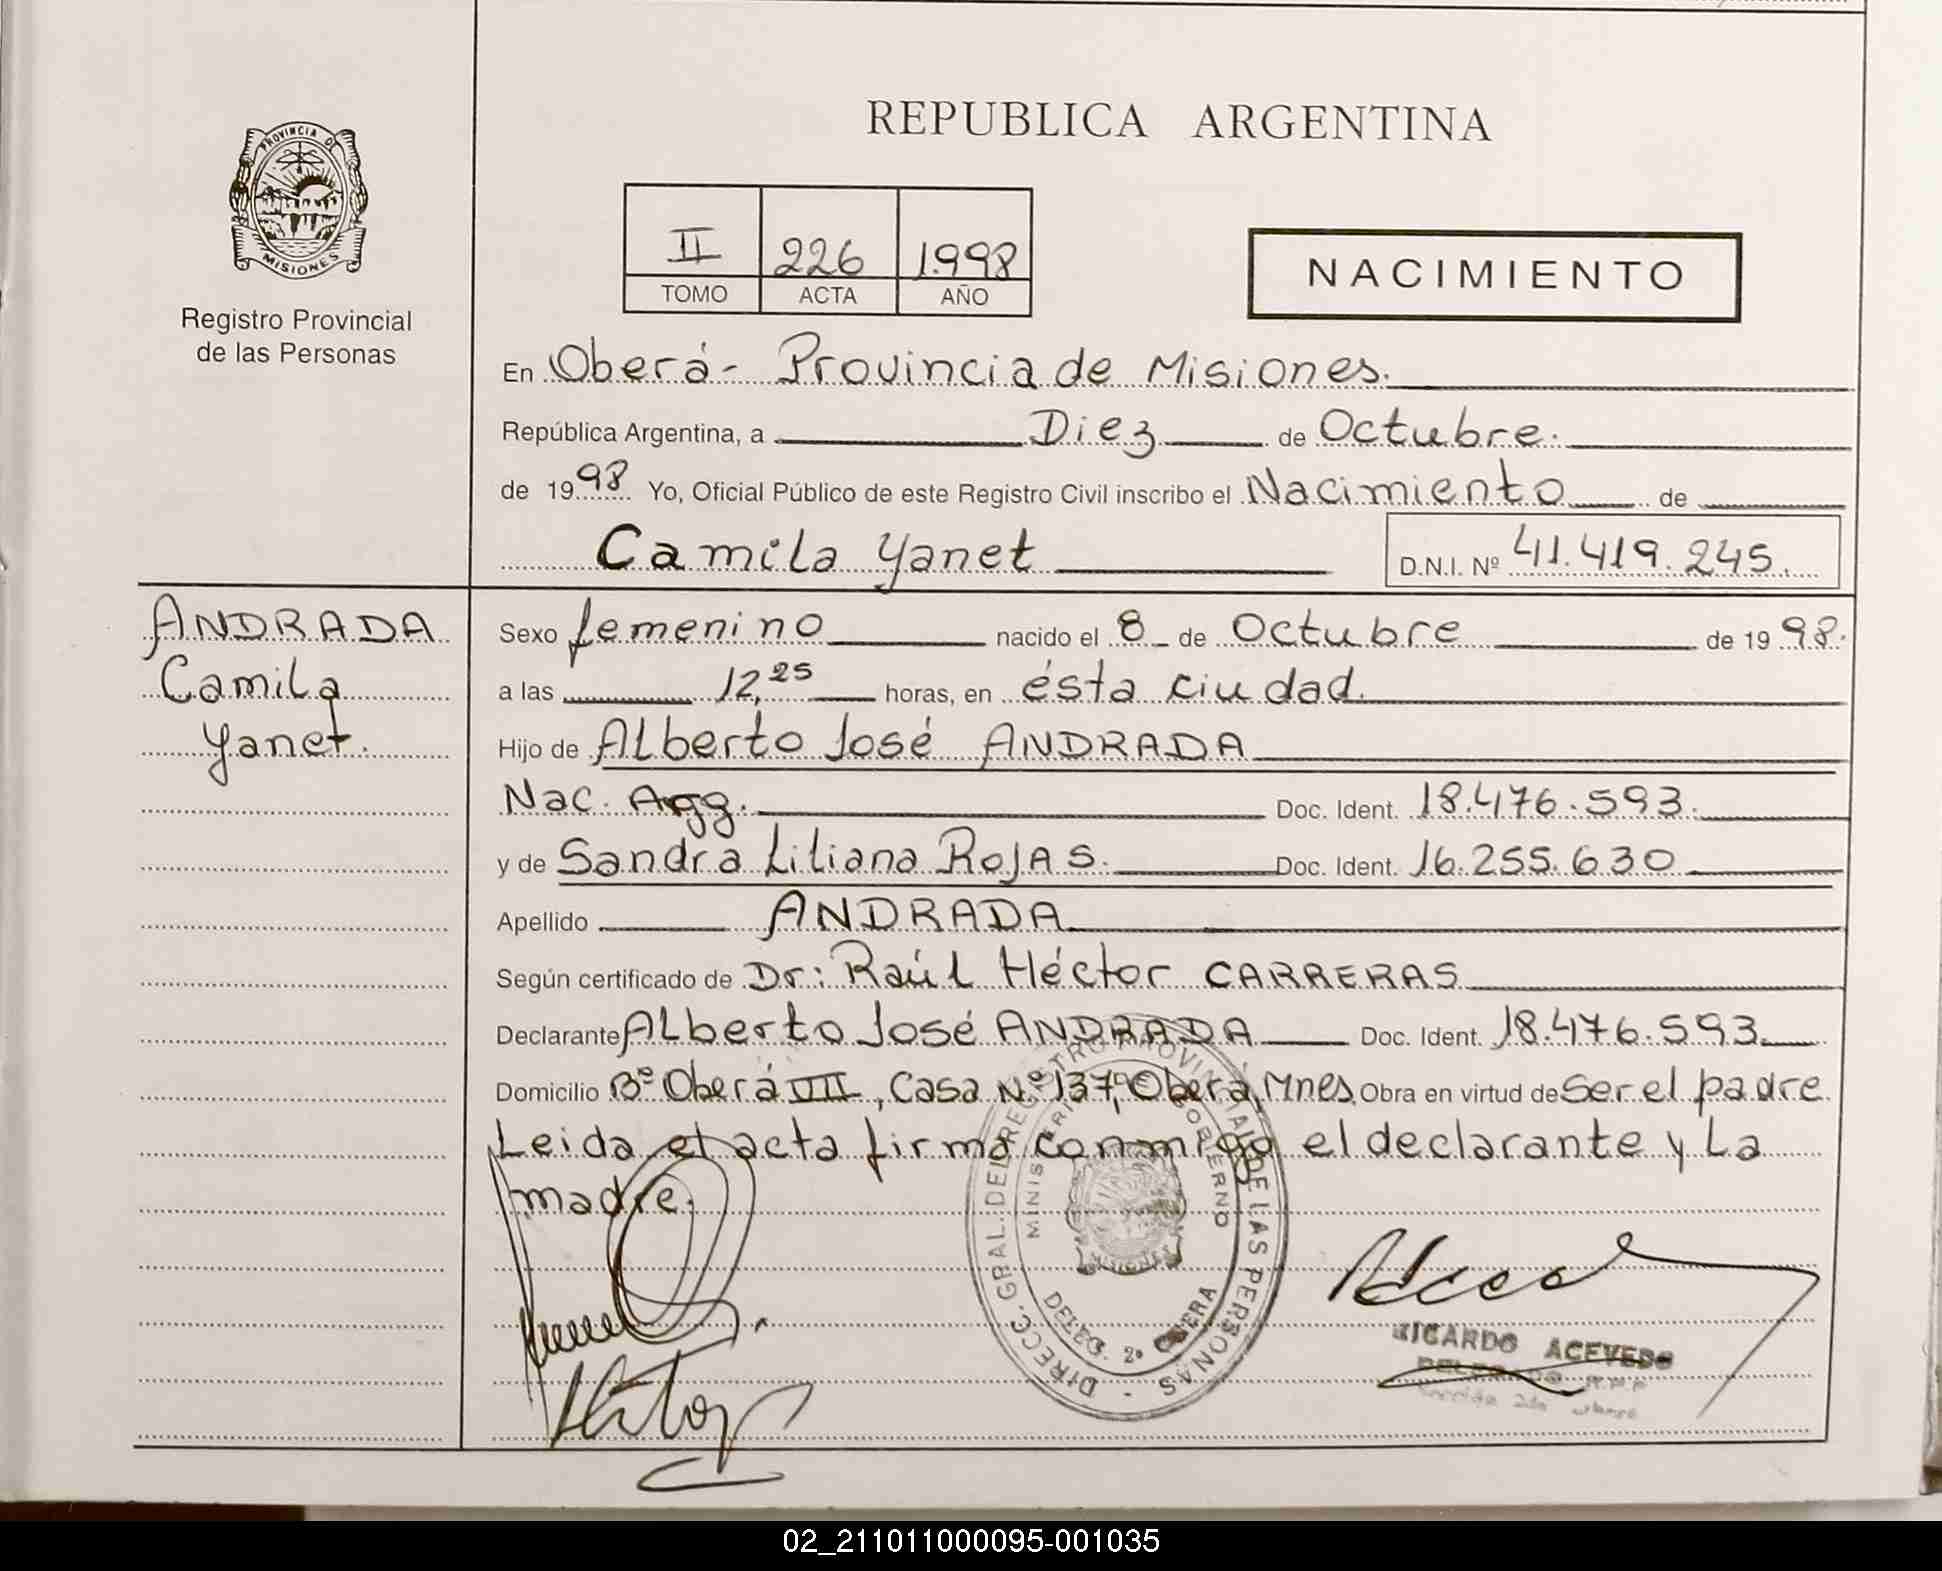 REPUBLICA ARGENTINA
PROVINCIA DE MISIONES
Registro Provincial
de las Personas
II 226 1.998
TOMO ACTA AÑO
NACIMIENTO
En Oberá- Provincia de Misiones.
República Argentina, a Diez de Octubre.
de 1998 Yo, Oficial Público de este Registro Civil inscribo el Nacimiento de
Camila Yanet D.N.I. Nº 41.419.245.
ANDRADA
Camila
Yanet.
Sexo femenino nacido el 8 de Octubre de 1998.
a las 12,25 horas, en ésta ciudad.
Hijo de Alberto José ANDRADA
Nac. Arg. Doc. Ident. 18.476.593.
y de Sandra Liliana ROJAS. Doc. Ident. 16.255.630
Apellido ANDRADA
Según certificado de Dr: Raúl Héctor CARRERAS
Declarante Alberto José ANDRADA Doc. Ident. 18.476.593
Domicilio Bº Oberá VIII, Casa Nº 137, Oberá, Mnes. Obra en virtud de Ser el padre
Leida el acta firma conmigo el declarante y La
madre.
DIRECC. GRAL. DEL REGISTRO PROVINCIAL DE LAS PERSONAS
MINISTERIO DE GOBIERNO
MISIONES
RICARDO ACEVEDO
02_211011000095-001035